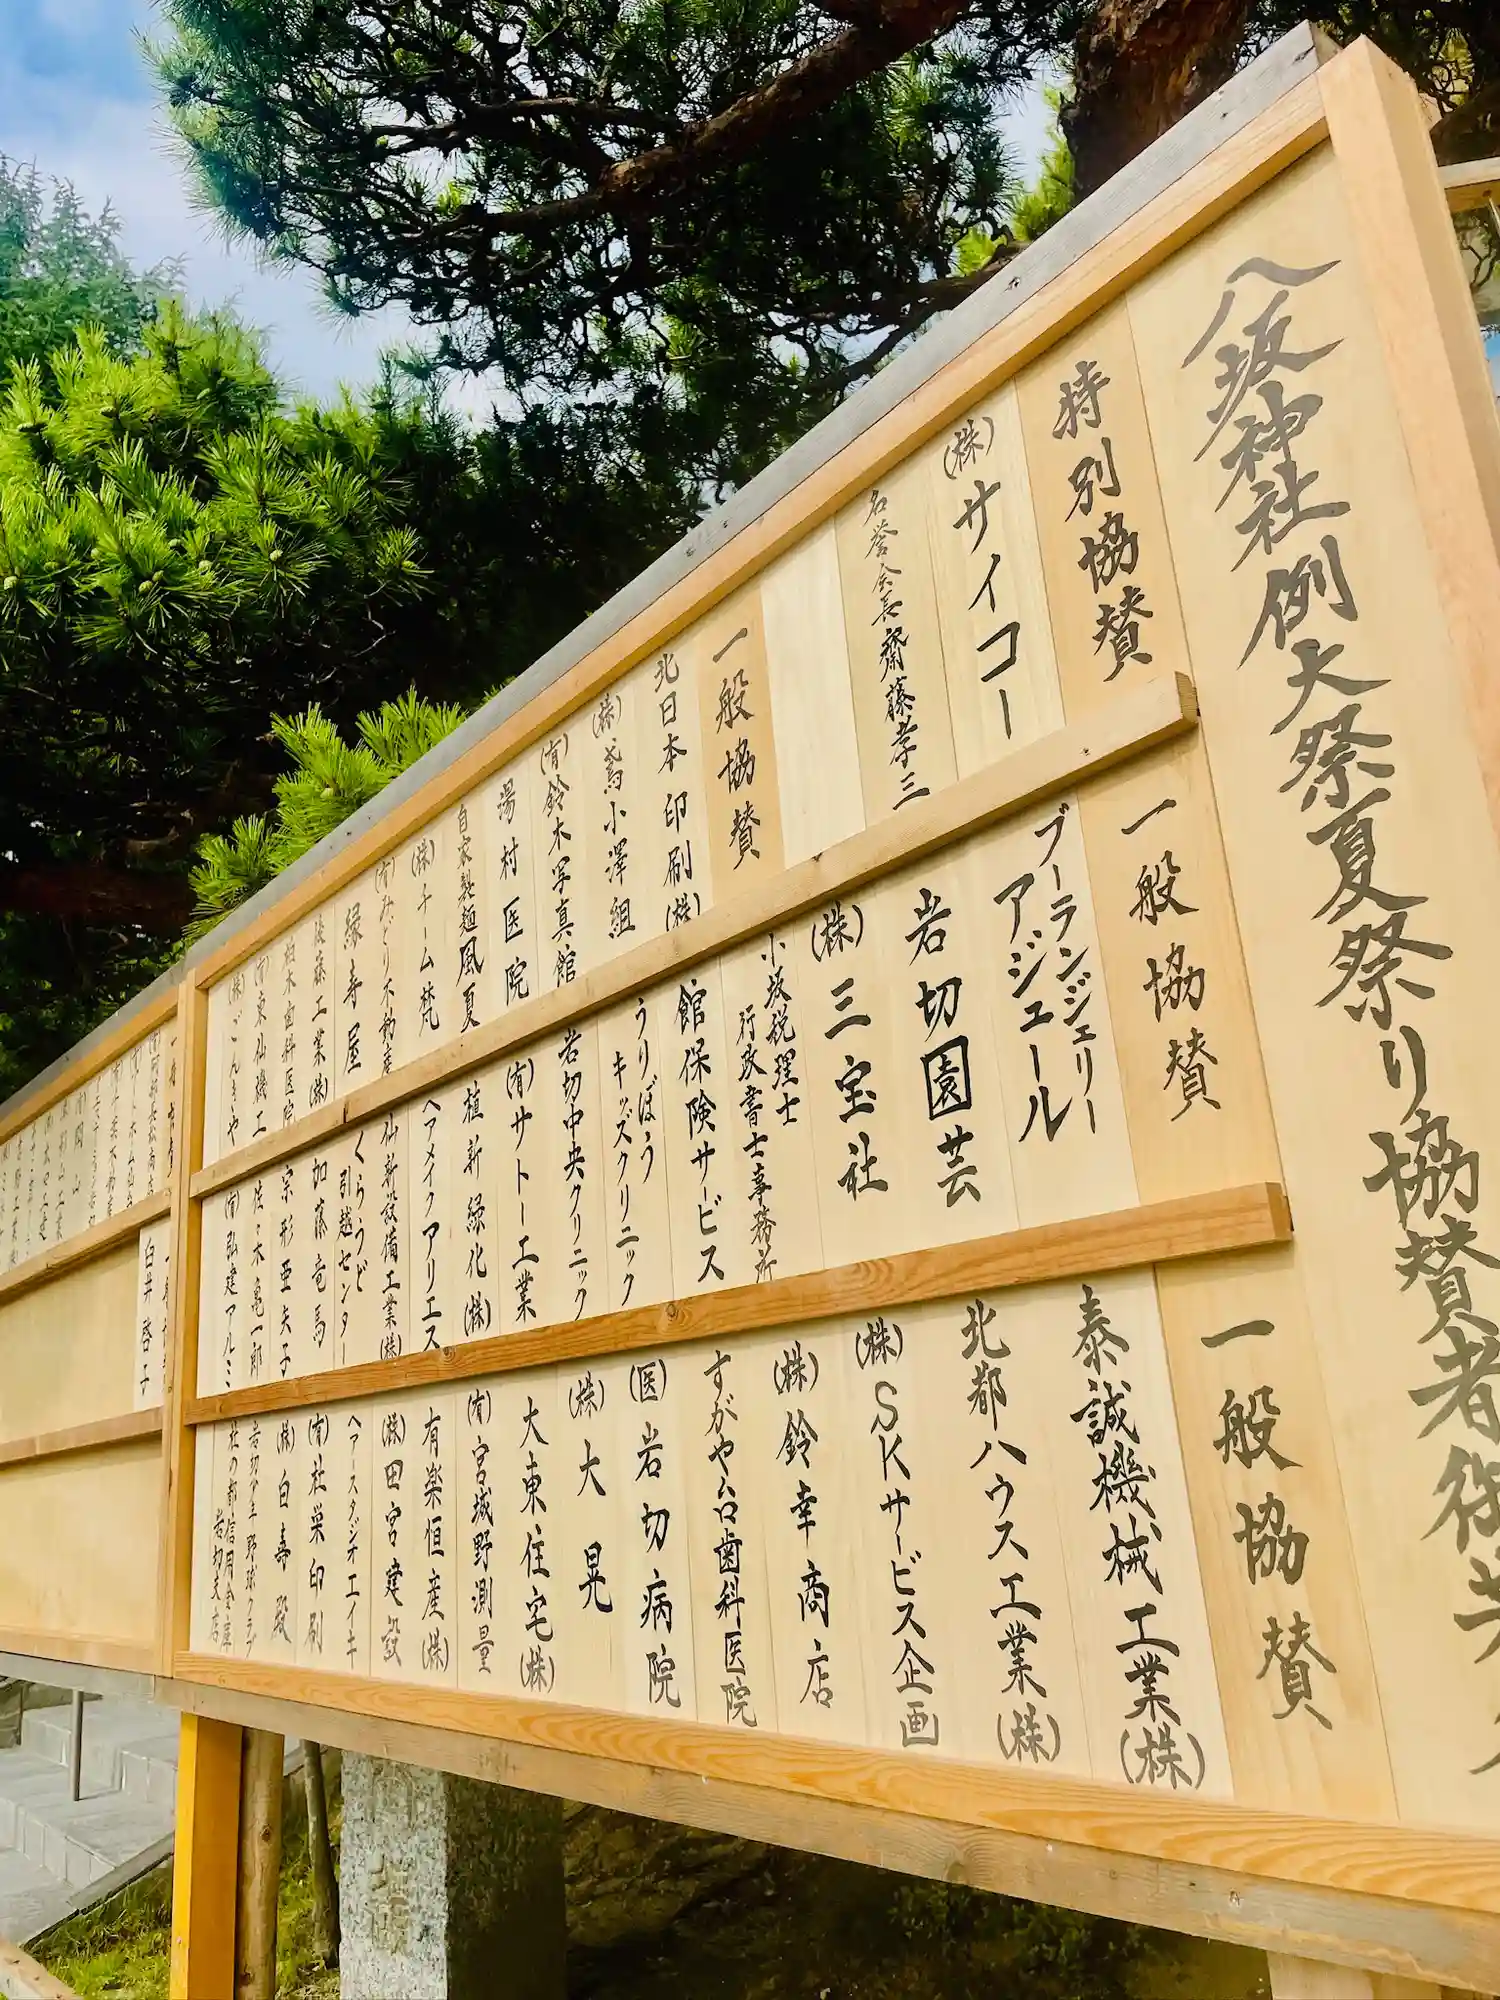 八坂神社例大祭夏祭り協賛者御芳名
特別協賛
(株)サイコー
名誉会長 齋藤孝三
一般協賛
北日本印刷(株)
(株)鳶小澤組
(有)鈴木写真館
湯村医院
自家製麺風夏
(株)チーム梵
(有)みどり不動産
縁寿屋
後藤工業(株)
柏木歯科医院
(有)東仙機工
(株)ごんきや
一般協賛
ブーランジェリー
アジュール
岩切園芸
(株)三宝社
小坂税理士
行政書士事務所
館保険サービス
うりぼう
キッズクリニック
岩切中央クリニック
(有)サトー工業
植新緑化(株)
ヘアメイクアリエス
仙新設備工業(株)
くらうど
引越センター
加藤竜馬
宗形亜矢子
佐々木亀一郎
(有)弘建アルミ
一般協賛
泰誠機械工業(株)
北都ハウス工業(株)
(株)SKサービス企画
(株)鈴幸商店
すがやムロ歯科医院
(医)岩切病院
(株)大晃
大東住宅(株)
(有)宮城野測量
有楽恒産(株)
(株)田宮建設
ヘアースタジオエイキ
(有)社巣印刷
(株)白寿殿
岩切少年野球クラブ
杜の都信用金庫
岩切支店
白井啓子